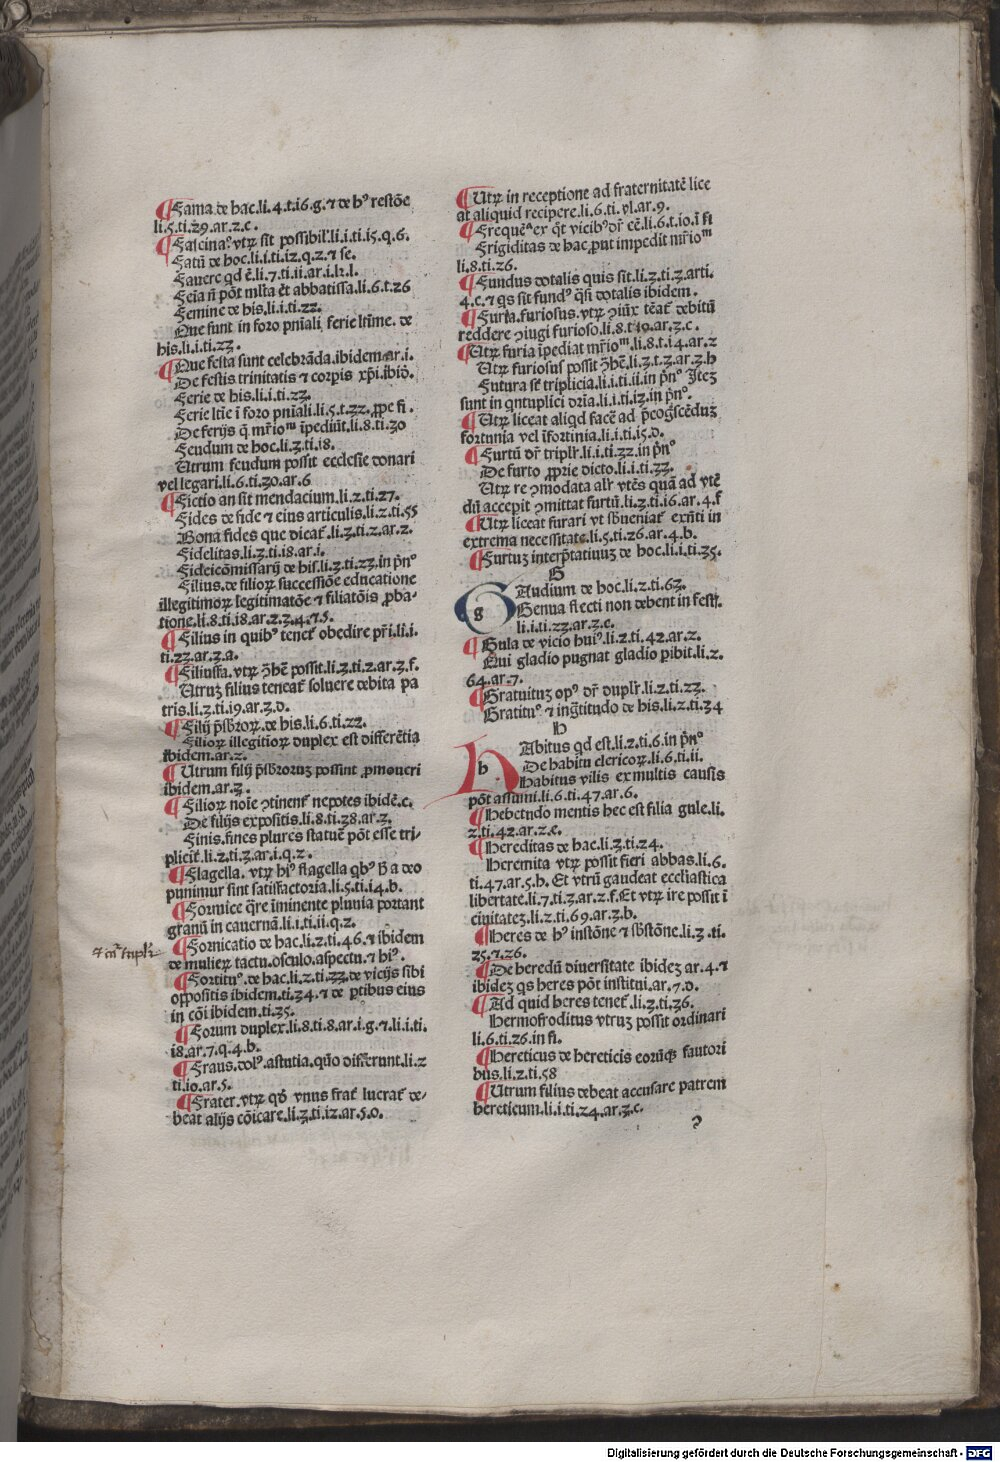 ¶Fama.de hac.li.4.t.i6.g.⁊ de hꝰ restōe
li.5.ti.29.ar.2.c.
¶Fascinaꝰ.vtꝝ sit possibil̓.li.i.ti.i5.q.6.
Fatū de hoc.li.i.ti.i2.q.2.⁊ se.
Fauere qd ē.li.7.ti.ii.ar.i.
Feia n̄ pōt
Femine de his.li.i.ti.22.
Que sunt in foro pn̄iali ferie
his.li.i.ti.23.
¶Que festa sunt celebrāda.ibidem.ar.i.
De festis trinitatis ⁊ corpis xp̄i.ibiō.
Ferie de his.li.i.ti.23.
Ferie ltīe ī foro pn̄iali.li.5.t.32. ꝓpe fi.
De ferijs q̄ mr̄ioᵐ īpediūt.li.8.ti.30
Feudum de hoc.li.3.ti.i8.
Utrum feudum possit ecclesie donari
vel legari.li.6.ti.30.ar.6
¶Fictio an sit mendacium.li.2.ti.27.
Fides de fide ⁊ eius articulis.li.2.ti.55
Bona fides que dicat̄.li.3.ti.2.ar.2.
Fidelitas.li.3.ti.i8.ar.i.
Fideicōmissarij de his.li.3.ti.23.in pn̄ᵒ
Filius.de filioꝝ successiōe educatione
illegitimoꝝ legitimatōe ⁊ filiatōis ꝓba-
tione.li.8.ti.i8.ar.2.3.4.⁊.5.
¶Filius in quibꝰ tenet̄ obedire pr̄i.li.i.
ti.23.ar.3.a.
¶Filiussa.vtꝝ ꝯhē possit.li.3.ti.2.ar.3.f.
Utruꝫ filius teneat̄ soluere debita pa
tris.li.3.ti.i9.ar.3.d.
¶Filij p̄sbroꝝ.de his.li.6.ti.22.
Filioꝝ illegitioꝝ duplex est differētia
ibidem.ar.2.
¶Utrum filij p̄sbroruꝫ possint ꝓmoueri
ibidem.ar.3.
¶Filioꝝ noīe ꝯtinent̄ nepotes ibidē.c.
De filijs expositis.li.8.ti.38.ar.3.
Finis.fines plures statuē pōt esse tri-
plicit̄.li.2.ti.3.ar.i.q.2.
¶Flagella.vtꝝ hiꝰ flagella qbꝰ a deo
punimur sint satisfactoria.li.5.ti.i4.b.
¶Formice q̄re īminente pluuia portant
granū in cauernā.li.i.ti.ii.q.2.
¶Fornicatio de hac.li.2.ti.46.⁊ ibidem
de mulieꝝ tactu.osculo.aspectu.⁊ hiꝰ.
¶Fortituᵒ.de hac.li.2.ti.33.de vicijs sibi
oppositis ibidem.ti.34.⁊ de ꝑtibus eius
in cōi ibidem.ti.35.
¶Forum duplex.li.8.ti.8.ar.i.g.⁊.li.i.ti.
i8.ar.7.q.4.b.
¶Fraus.dolꝰ.astutia.quō differunt.li.2
ti.i0.ar.5.
¶Frater.vtꝝ qd̓ vnus frat̄ lucrat̄ de-
beat alijs cōicare.li.3.ti.i2.ar.5.o.
¶Utꝝ in receptione ad fraternitatē lice
at aliquid recipere.li.6.ti.vl.ar.9.
¶Frequēᵃ ex q̄t vicibꝰ dr̄ cē.li.6.t.i0.ī fi
Frigiditas de hac ꝓut impedit mr̄ioᵐ
li.8.ti.26.
¶Fundus dotalis quis sit.li.2.ti.3.arti.
4.c.⁊ qs sit fundꝰ q̄si dotalis ibidem.
¶Furia.furiosus.vtꝝ ꝯiūx teneat̄ debitū
reddere ꝯiugi furioso.li.8.t.i9.ar.3.c.
¶Utꝝ furia īpediat mr̄ioᵐ.li.8.ti.4.ar.2
Utꝝ furiosus possit ꝯhē.li.3.t.3.ar.3.h
Futura sē triplicia.li.i.ti.ii.in pn̄ᵒ Itez
sunt in qntuplici dr̄ia.li.i.ti.i2.in pn̄ᵒ.
¶Utꝝ liceat aliqd facē ad p̄cogscēduꝫ
fortunia vel īfortinia.li.i.ti.i5.d.
¶Furtū dr̄ triplr̄.li.i.ti.32.in pn̄ᵒ
De furto ꝓprie dicto.li.i.ti.33.
Utꝝ re ꝯmodata alr̄ vtēs quā ad vtē
dū accepit ꝯmittat furtū.li.3.ti.i6.ar.4.f
¶Utꝝ liceat furari vt sb̄ueniat̄ exn̄ti in
extrema necessitate.li.5.ti.26.ar.4.b.
¶Furtuꝫ interp̄tatiuuꝫ de hoc.li.i.ti.35.
G
g
GAudium de hoc.li.2.ti.63.
Genua flecti non debent in festꝭ.
li.i.ti.23.ar.3.e.
¶Gula de vicio huiꝰ.li.2.ti.42.ar.2.
Qui gladio pugnat gladio peribit.li.2.
64.ar.7.
¶Gratuituꝫ opꝰ dr̄ duplr̄.li.2.ti.23.
Gratituᵒ ⁊ ingtitudo de his.li.2.ti.34
H
h
HAbitus qd est.li.2.ti.6.in pn̄ᵒ
De habitu clericoꝝ.li.6.ti.ii.
Habitus vilis ex multis causis
pōt assumi.li.6.ti.47.ar.6.
¶Hebetudo mentis hec est filia gule.li.
2.ti.42.ar.2.e.
¶Hereditas de hac.li.3.ti.24.
Heremita vtꝝ possit fieri abbas.li.6.
ti.47.ar.5.h. Et vtrū gaudeat ecclesiastica
libertate.li.7.ti.3.ar.2.f.Et vtꝝ ire possit ī
ciuitatez.li.2.ti.69.ar.3.b.
¶Heres de hꝰ instōne ⁊ sb̄stōne.li.3.ti.
25.⁊.26.
¶De heredū diuersitate ibidez ar.4.⁊
ibidez qs heres pōt institui.ar.7.d.
¶Ad quid heres tenet̄.li.3.ti.36.
Hermofroditus vtruꝫ possit ordinari
li.6.ti.26.in fi.
¶Hereticus de hereticis eorūqꝫ fautori
bus.li.2.ti.58
¶Utrum filius debeat accusare patrem
hereticum.li.i.ti.24.ar.3.c.
2
Digitalisierung gefördert durch die Deutsche Forschungsgemeinschaft - DFG